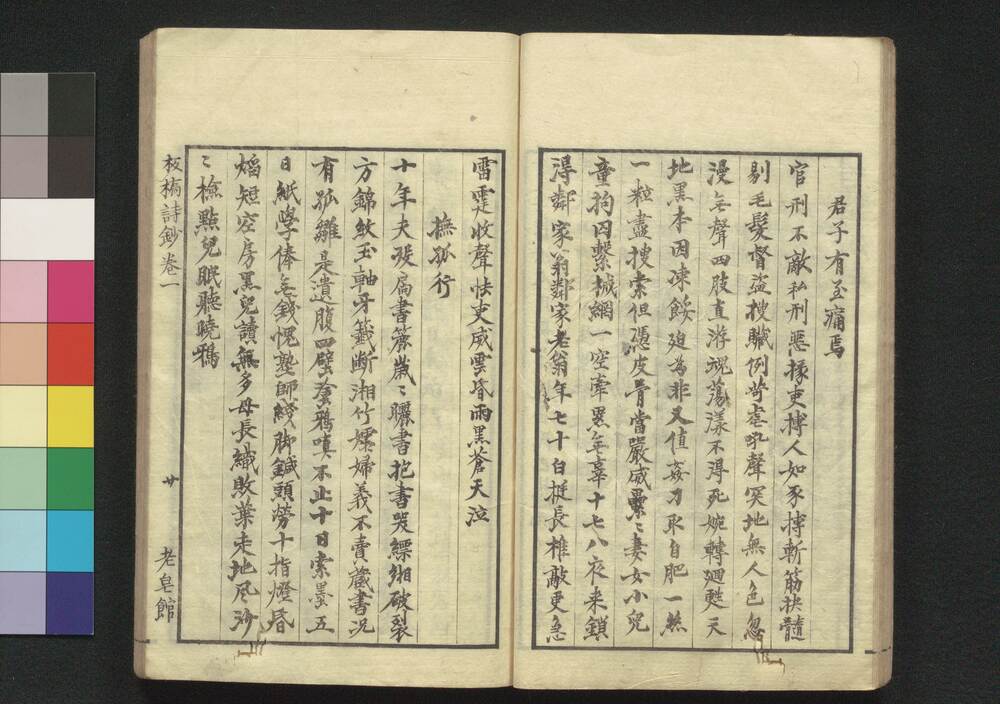 君子有至痛焉
官刑不敵私刑惡掾吏搏人如豕搏斬筋抉髓
剔毛髮督盜搜贓例苛虐吼聲突地無人色忽
漫无聲四肢直游魂蕩漾不得死婉轉迴甦天
地黑本因凍餒迫為非又值姦刁取自肥一絲
一粒盡搜索但憑皮骨當嚴威纍〻妻女小兒
童拘囚繫械網一空牽累无辜十七八夜来鎖
得鄰家翁鄰家老翁年七十白梃長椎敲更急
雷霆收聲怯吏威雲昏雨黑蒼天泣
撫孤行
十年夫歿扃書簏歲〻曬書抱書哭縹緗破裂
方錦紋玉軸牙籤斷湘竹孀婦義不賣藏書況
有孤雛是遺腹四壁塗鴉嗔不止十日索墨五
日紙學俸无錢愧塾師綫脚鍼頭勞十指燈昏
焰短空房黑兒讀無多母長織敗葉走地風沙
〻檢點兒眠聽曉鴉
板橋詩鈔卷一
廿
老皂館